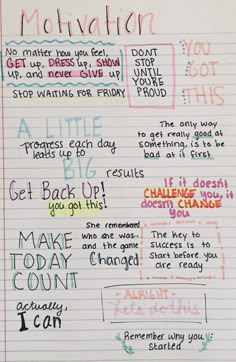 Motivation
No matter how you feel,
GET up, DRESS up, SHOW
up, and never GIVE up!
DONT
STOP
UNTIL
YOU'RE
PROUD
YOU
GOT
THIS
STOP WAITING FOR FRIDAY
A LITTLE
progress each day
leads up to
BIG
results
The only way
to get really good at
something, is to be
bad at it first
Get Back Up!
you got this!
If it doesn't
CHALLENGE you, it
doesn't CHANGE
you
MAKE
TODAY
COUNT
She remembered
who she was
and the game
Changed.
The key to
Success is to
Start before you
are ready
actually,
I can
- ALRIGHT -
Lets do this
Remember why you
Started